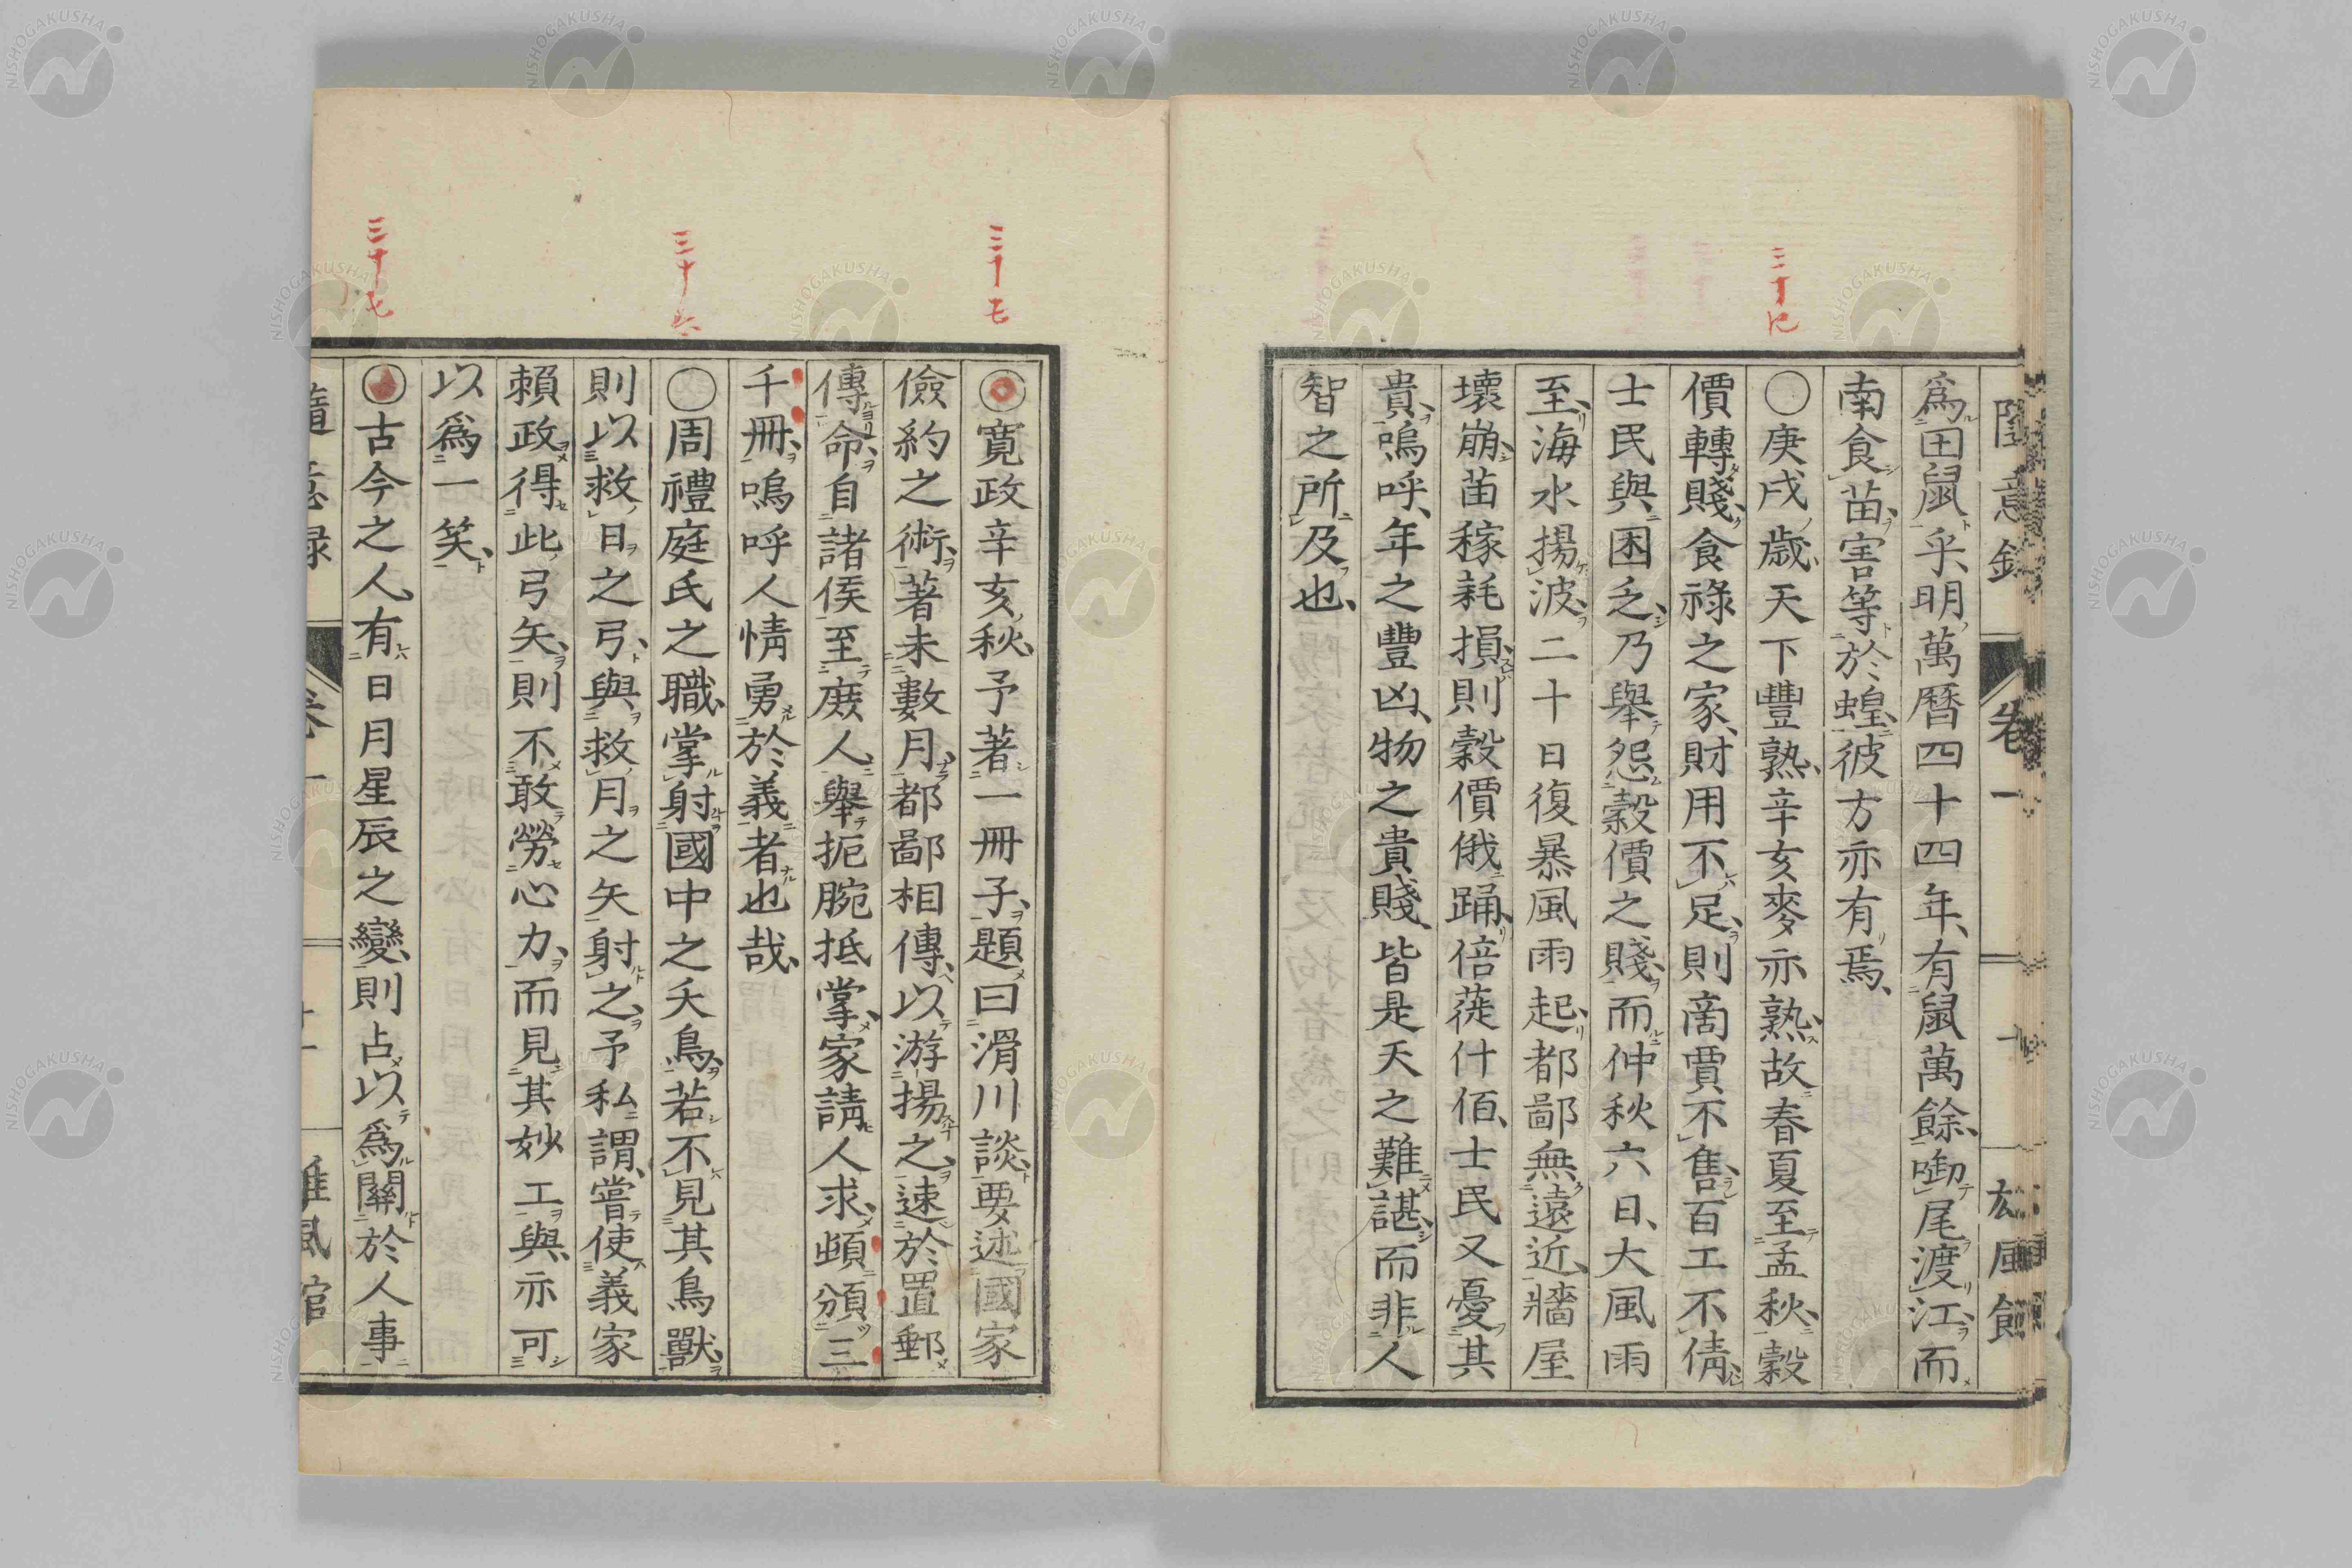 隨意錄 卷一 十 雄風館
三十四
爲田鼠乎、明萬曆四十四年、有鼠萬餘、啣尾渡江、而
南食苗、害等於蝗、彼方亦有焉、
○庚戌歲、天下豐熟、辛亥麥亦熟、故春夏至孟秋、穀
價轉賤、食祿之家、財用不足、則商賈不售、百工不倩、
士民與困乏、乃舉怨穀價之賤、而仲秋六日、大風雨
至、海水揚波、二十日復暴風雨起、都鄙無遠近、牆屋
壞崩、苗稼耗損、則穀價俄踊、倍蓰什佰、士民又憂其
貴、嗚呼、年之豐凶、物之貴賤、皆是天之難諶、而非人
智之所及也、
三十五
三十六
三十七
○寛政辛亥秋、予著一冊子、題曰滑川談、要述國家
儉約之術、著未數月、都鄙相傳、以游揚之、速於置郵
傳命、自諸侯至庶人、舉扼腕抵掌、家請人求、頗頒三
千冊、嗚呼人情勇於義者也哉、
○周禮庭氏之職、掌射國中之夭鳥、若不見其鳥獸、
則以救日之弓、與救月之矢射之、予私謂、嘗使義家
賴政得此弓矢、則不敢勞心力、而見其妙工與、亦可
以爲一笑、
○古今之人有日月星辰之變、則占以爲關於人事
隨意録 卷一 十一 雄風館
NISHOGAKUSHA